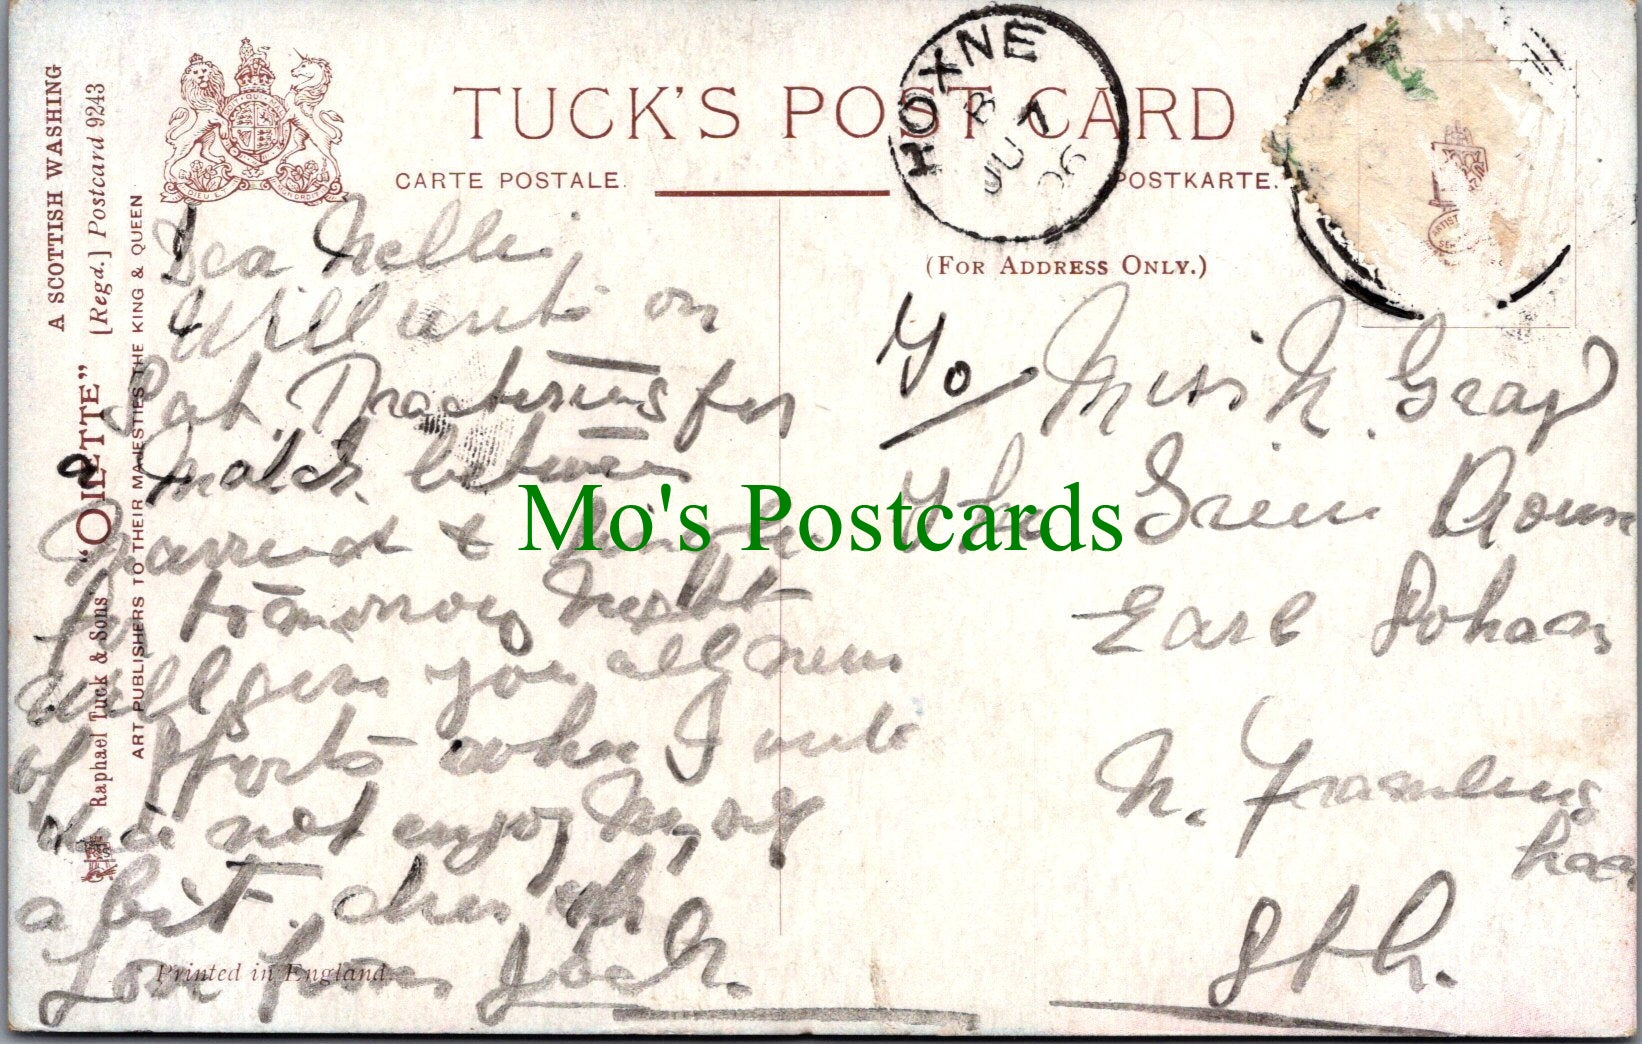 A SCOTTISH WASHING
"OILETTE" [Regd.] Postcard 9243
Raphael Tuck & Sons'
ART PUBLISHERS TO THEIR MAJESTIES THE KING & QUEEN
TUCK'S POST CARD
CARTE POSTALE.
POSTKARTE.
HOXNE
B
JU 7
06
(FOR ADDRESS ONLY.)
Dear Nellie,
Will write on
Sat. Practising for
match between
Married & Single
for tomorrow night
will give you all news
of sports when I write
did not enjoy myself
a bit. cheer up
Love from Jack.
To Miss N. Gray
The House
Earl Soham
N. Framling
ham
Mo's Postcards
Printed in England.